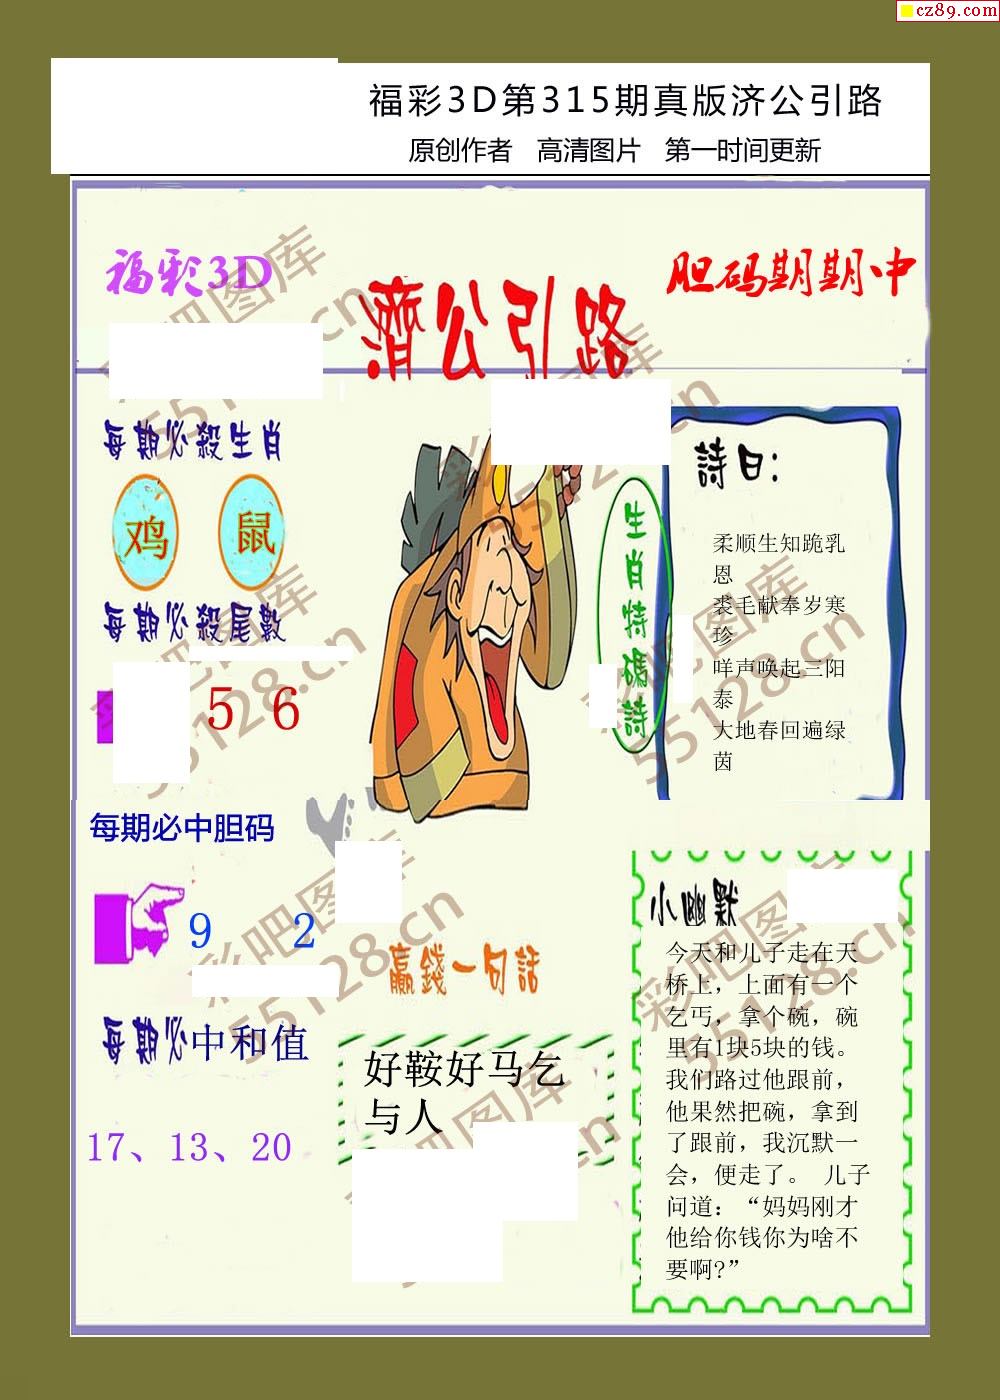 cz89.com
福彩3D第315期真版济公引路
原创作者 高清图片 第一时间更新
福彩3D
濟公引路
胆码期期中
每期必殺生肖
鸡 鼠
每期必殺尾數
5 6
每期必中胆码
9 2
每期必中和值
17、13、20
生肖特碼詩
詩曰:
柔顺生知跪乳
恩
裘毛献奉岁寒
珍
咩声唤起三阳
泰
大地春回遍绿
茵
赢錢一句話
好鞍好马乞
与人
小幽默
今天和儿子走在天
桥上，上面有一个
乞丐，拿个碗，碗
里有1块5块的钱。
我们路过他跟前，
他果然把碗，拿到
了跟前，我沉默一
会，便走了。 儿子
问道：“妈妈刚才
他给你钱你为啥不
要啊?”
彩吧图库
55128.cn
彩吧图库
55128.cn
彩吧图库
55128.cn
彩吧图库
55128.cn
彩吧图库
55128.cn
彩吧图库
55128.cn